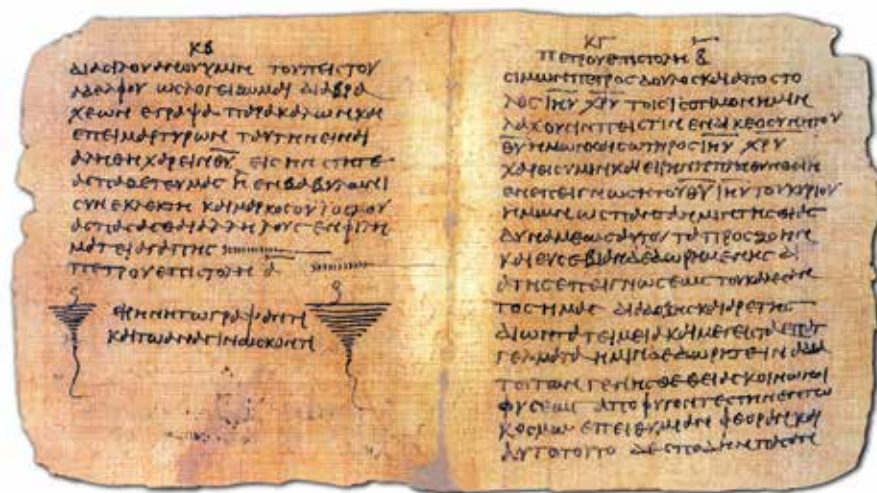 ΚΒ
ΔΙΑ ϹΙΛΟΥΑΝΟΥ ΥΜΙΝ ΤΟΥ ΠΕΙϹΤΟΥ
ΑΔΕΛΦΟΥ ΩϹ ΛΟΓΕΙΖΟΜΑΙ ΔΙΑ ΒΡΑ
ΧΕΩΝ ΕΓΡΑΨΑ ΠΑΡΑΚΑΛΩΝ ΚΑΙ
ΕΠΕΙΜΑΡΤΥΡΩΝ ΤΑΥΤΗΝ ΕΙΝΑΙ
ΑΛΗΘΗ ΧΑΡΕΙΝ Θ̅Υ̅ ΕΙϹ ΗΝ ϹΤΗΤΕ
ΑϹΠΑΖΕΤΕ ΥΜΑϹ Η ΕΝ ΒΑΒΥΛΩΝΙ
ϹΥΝΕΚΛΕΚΤΗ ΚΑΙ ΜΑΡΚΟϹ Ο ΥΙΟϹ ΜΟΥ
ΑϹΠΑϹΑϹΘΑΙ ΑΛΛΗΛΟΥϹ ΕΝ ΦΙΛΗ
ΜΑΤΕΙ ΑΓΑΠΗϹ
ΠΕΤΡΟΥ ΕΠΙϹΤΟΛΗ Α̅
ΕΙΡΗΝΗ ΤΩ ΓΡΑΨΑΝΤΙ
ΚΑΙ ΤΩ ΑΝΑΓΙΝΩϹΚΟΝΤΙ
ΚΓ
ΠΕΤΡΟΥ ΕΠΙϹΤΟΛΗ Β̅
ϹΙΜΩΝ ΠΕΤΡΟϹ ΔΟΥΛΟϹ ΚΑΙ ΑΠΟϹΤΟ
ΛΟϹ Ι̅Η̅Υ̅ Χ̅Ρ̅Υ̅ ΤΟΙϹ ΙϹΟΤΙΜΟΝ ΗΜΙΝ
ΛΑΧΟΥϹΙΝ ΠΕΙϹΤΙΝ ΕΝ ΔΙΚΕΟϹΥΝΗ ΤΟΥ
Θ̅Υ̅ ΗΜΩΝ ΚΑΙ ϹΩΤΗΡΟϹ Ι̅Η̅Υ̅ Χ̅Ρ̅Υ̅
ΧΑΡΕΙϹ ΥΜΙΝ ΚΑΙ ΕΙΡΗΝΗ ΠΛΗΘΥΝΘΕΙΗ
ΕΝ ΕΠΕΙΓΝΩϹΗ ΤΟΥ Θ̅Υ̅ Ι̅Η̅Υ̅ ΤΟΥ ΚΥΡΙΟΥ
ΗΜΩΝ ΩϹ ΠΑΝΤΑ ΗΜΙΝ ΤΗϹ ΘΙΑϹ
ΔΥΝΑΜΕΩϹ ΑΥΤΟΥ ΤΑ ΠΡΟϹ ΖΩΗΝ
ΚΑΙ ΕΥϹΕΒΙΑΝ ΔΕΔΩΡΗΜΕΝΗϹ ΔΙ
Α ΤΗϹ ΕΠΕΙΓΝΩϹΕΩϹ ΤΟΥ ΚΑΛΕϹΑΝ
ΤΟϹ ΗΜΑϹ ΔΙΑ ΔΟΞΗϹ ΚΑΙ ΑΡΕΤΗϹ
ΔΙ ΩΝ ΤΑ ΤΕΙΜΕΙΑ ΚΑΙ ΜΕΓΕΙϹΤΑ ΕΠΑΓ
ΓΕΛΜΑΤΑ ΗΜΙΝ ΔΕΔΩΡΗΤΕ ΙΝΑ ΔΙΑ
ΤΟΥΤΩΝ ΓΕΝΗϹΘΕ ΘΕΙΑϹ ΚΟΙΝΩΝΟΙ
ΦΥϹΕΩϹ ΑΠΟΦΥΓΟΝΤΕϹ ΤΗΝ ΕΝ ΤΩ
ΚΟϹΜΩ ΕΠΕΙΘΥΜΙΑΝ ΦΘΟΡΑΝ ΚΑΙ
ΑΥΤΟ ΤΟΥΤΟ ΔΕ ϹΠΟΥΔΗΝ ΠΑϹΑΝ